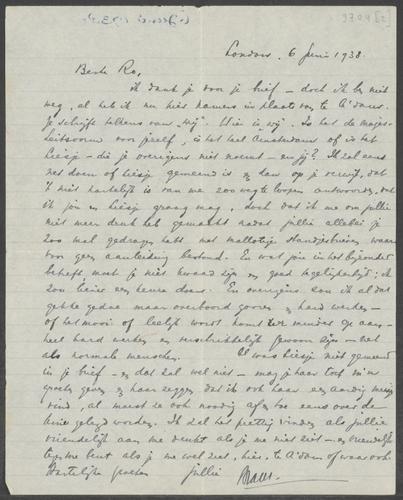 Londen, 6 Juni 1938.
Beste Ro,
Ik dank je voor je brief – doch ik ben niet
weg, al heb ik nu hier kamers in plaats van te A'dam.
Je schrijft telkens van "wij". Wie is wij? Is het de majes-
teitsvorm voor jezelf, is het heel Amsterdam of is het
Liesje – die je overigens niet noemt – en jij? Ik zal eens
doen of Liesje gemeend is en dan op je verwijt, dat
't niet hartelijk is van me zoo weg te loopen antwoorden, dat
ik jou en Liesje graag mag, doch dat ik me om jullie
niet meer druk heb gemaakt nadat jullie allebei je
zoo mal gedragen hebt met mallotige standjes waar-
voor geen aanleiding bestond. En wat jou in het bijzonder
betreft, moet je niet kwaad zijn en goed tegelijkertijd; ik
zou liever een keuze doen. En overigens zou ik al dat
gekke gedoe maar overboord gooien en hard werken –
of het mooi of leelijk wordt komt er minder op aan –
heel hard werken en verschrikkelijk gewoon zijn – net
als normale menschen. Als Liesje niet gemeend
is in je brief – en dat zal wel niet – mag je haar toch m'n
groeten geven en haar zeggen dat ik ook haar een aardig meisje
vind, al moest ze ook noodig af en toe eens over de
knie gelegd worden. Ik zal het prettig vinden als jullie
vriendelijk aan me denkt als je me niet ziet – en vriendelijk
tegen me bent als je me wel ziet, hier, te A'dam of waar ook
Hartelijke groeten jullie